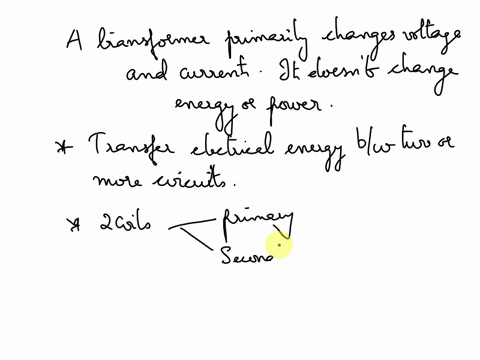 A transformer primarily changes voltage
and current. It doesn't change
energy or power.
* Transfer electrical energy b/w two or
more circuits.
* 2 coils primary
Secon